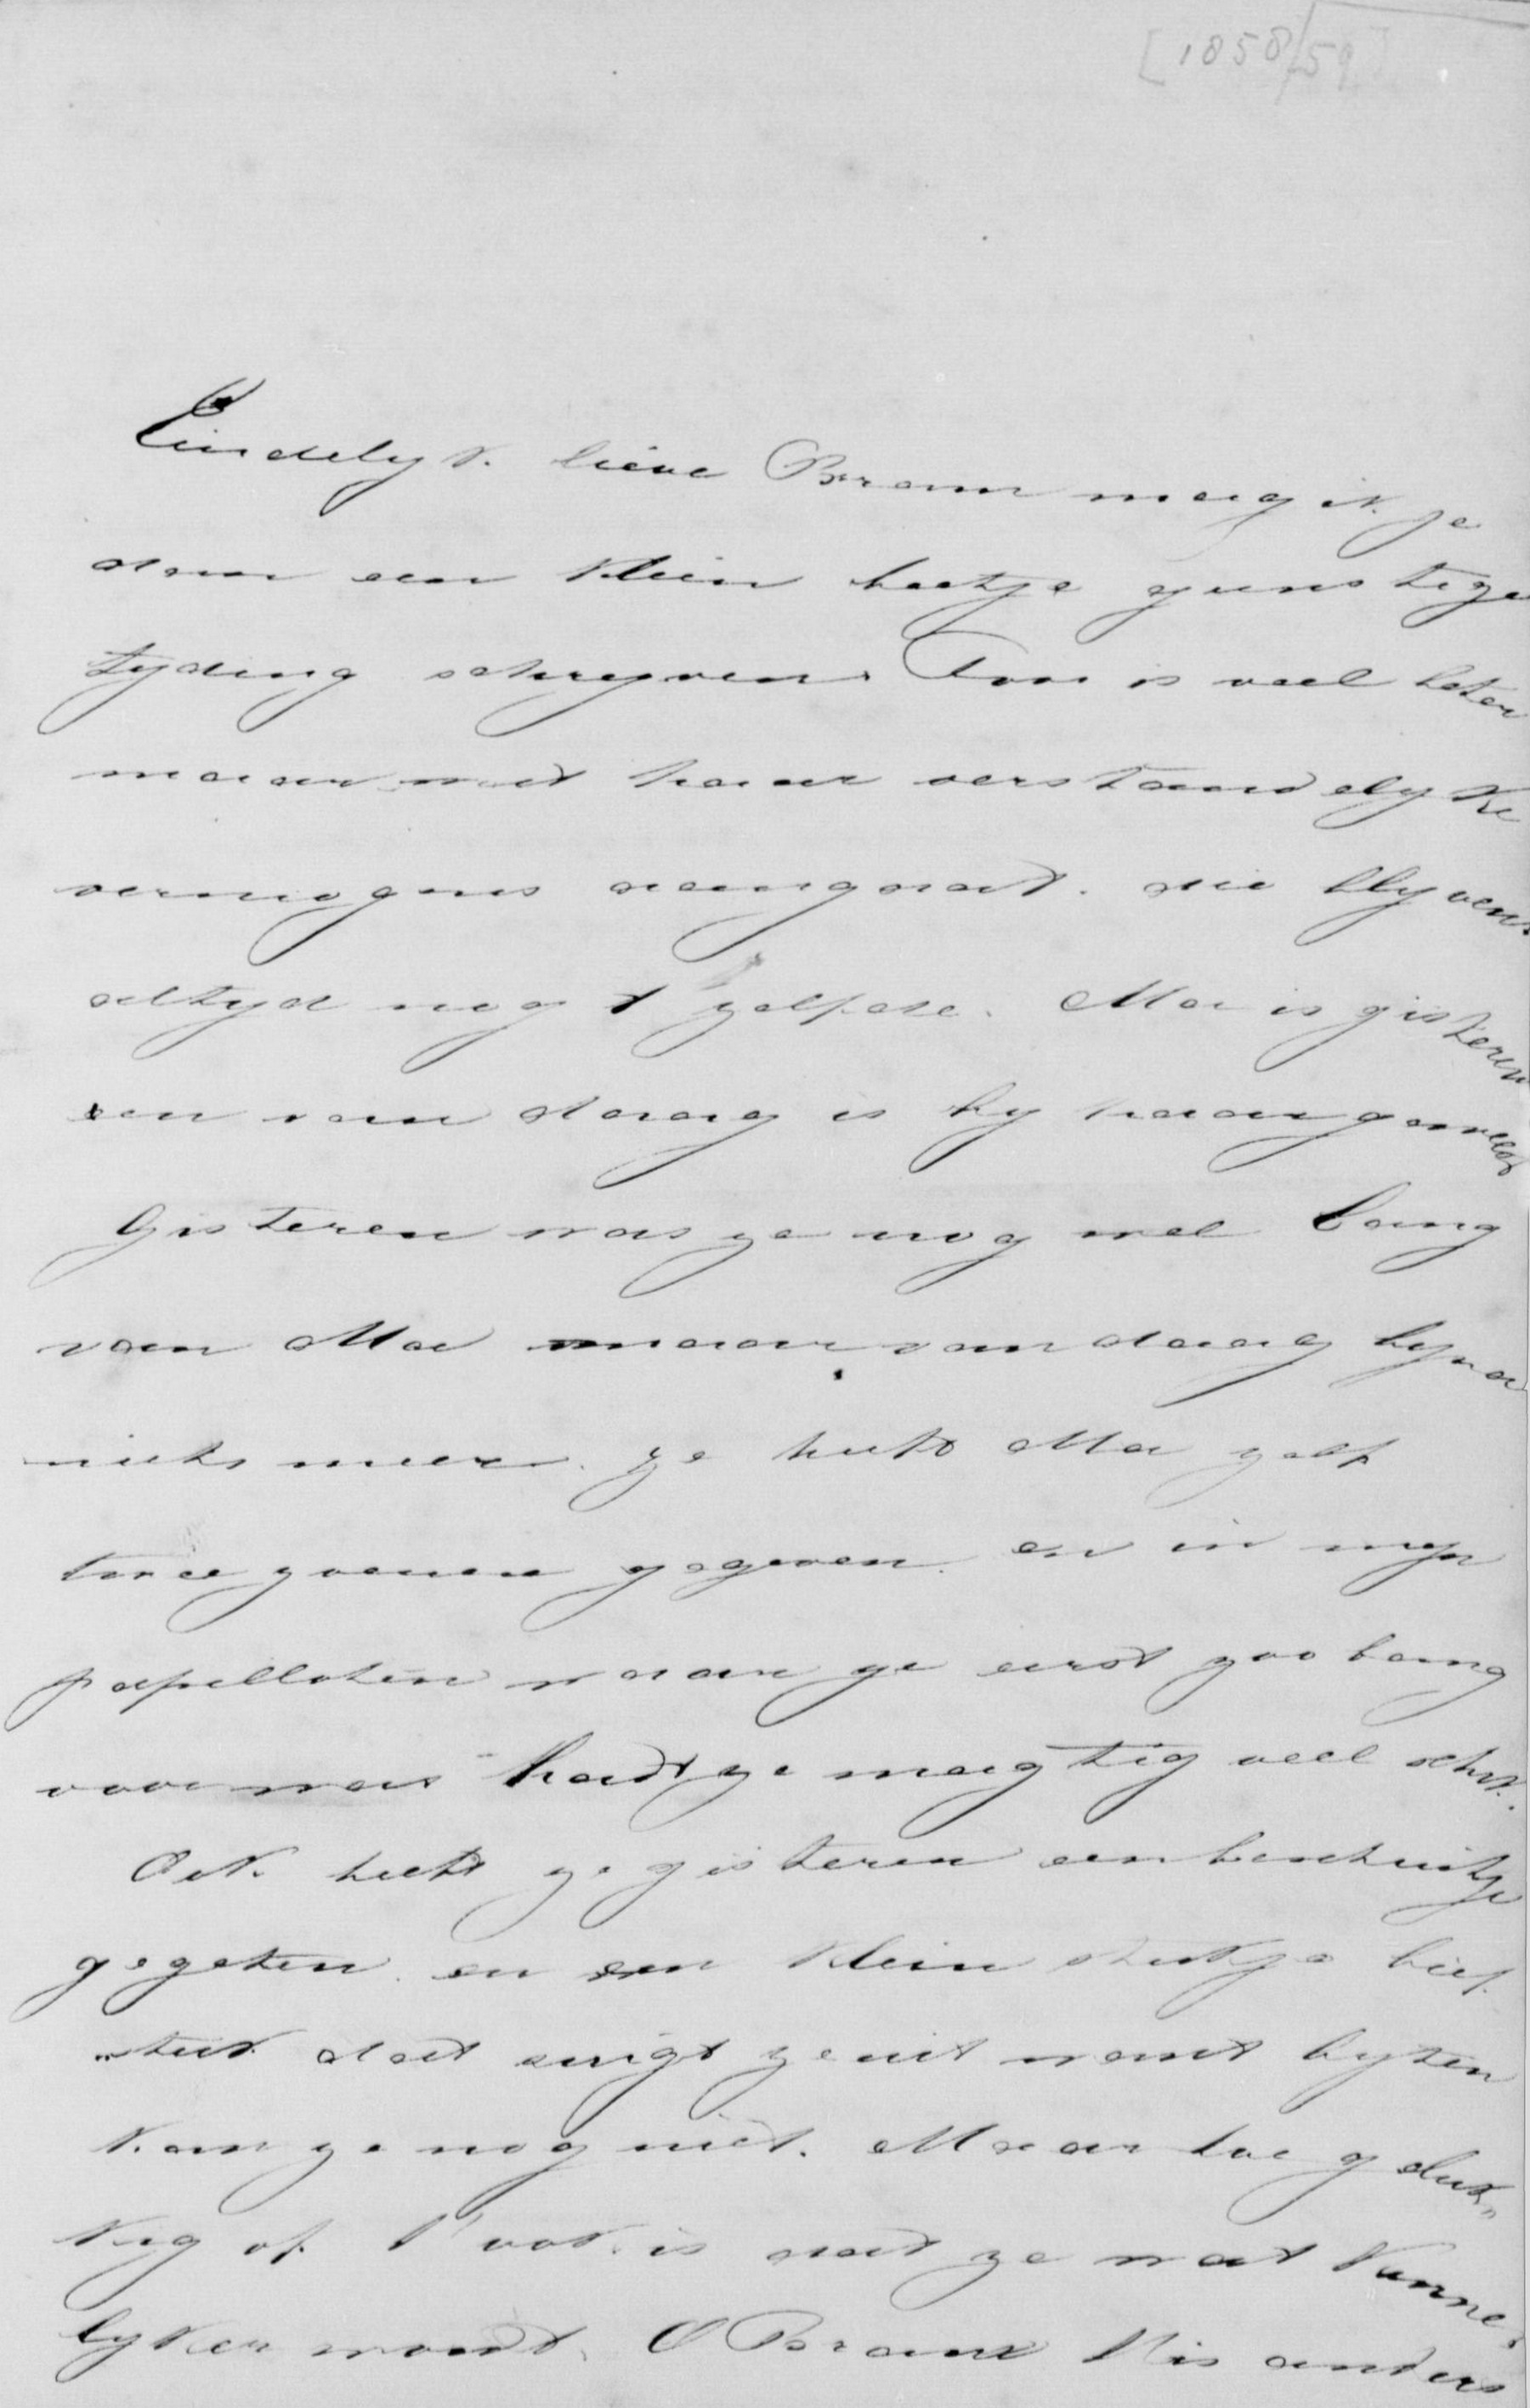 [1858/59]
Eindelyk lieve Bram mag ik je
dan een klein beetje gunstige
tyding schryven. Too is veel beter
maar wat haar verstandelyke
vermogens aangaat. die blyven
altyd nog 't zelfde. Ma is gisteren
en van daag is by haar geweest
Gisteren was ze nog wel bang
van Ma maar van daag byna
niets meer. ze heeft Ma zelf
twee zoenen gegeven. en in myn
papilloten waar ze eerst zoo bang
voor was hadt ze magtig veel schik.
Ook heeft ze gisteren een beschuitje
gegeten. en een klein stukje bief-
"stuk dat zuigt ze uit want byten
kan ze nog niet. Maar hoe geluk„
kig of 't ook is dat ze wat kunne„
lyker wordt. O Bram 't is anders